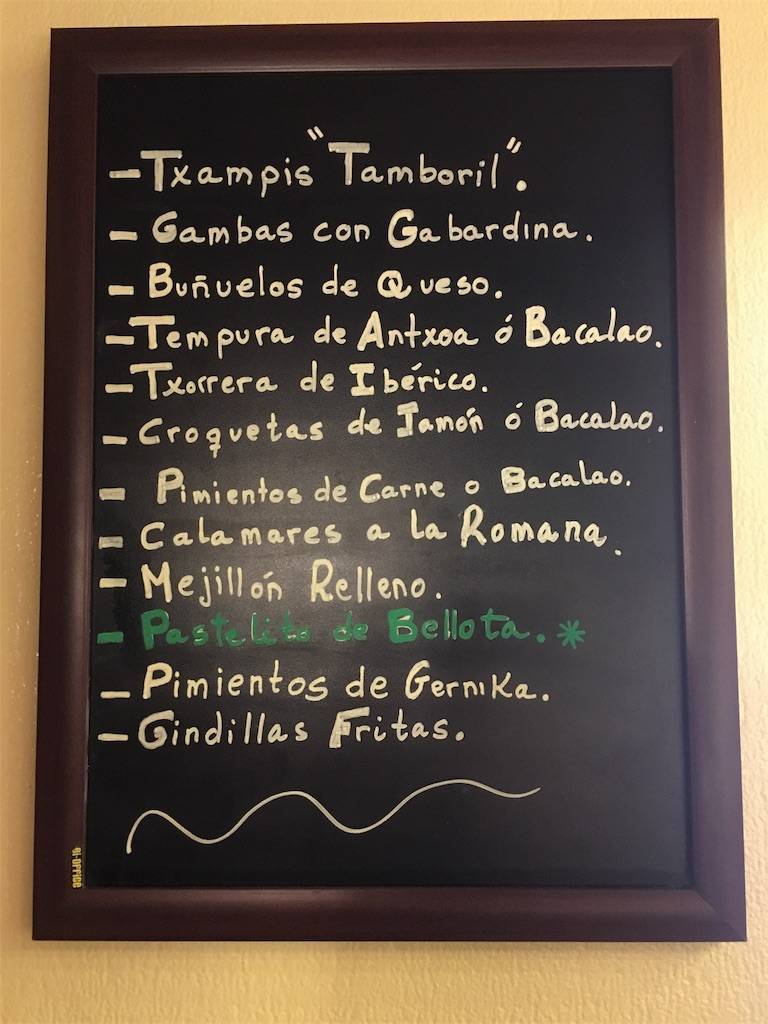 - Txampis "Tamboril".
- Gambas con Gabardina.
- Buñuelos de Queso.
- Tempura de Antxoa ó Bacalao.
- Txorrera de Ibérico.
- Croquetas de Jamón ó Bacalao.
- Pimientos de Carne o Bacalao.
- Calamares a la Romana.
- Mejillón Relleno.
- Pastelito de Bellota. *
- Pimientos de Gernika.
- Gindillas Fritas.
di-OFFICE